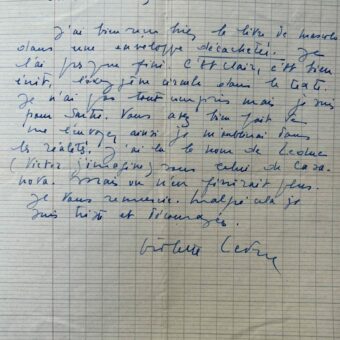 J'ai bien reçu hier le livre de Mascolo
dans une enveloppe décachetée. Je
l'ai presque fini. C'est clair, c'est bien
écrit, l'oxygène circule dans le texte.
Je n'ai pas tout compris mais je suis
pour Sartre. Vous avez bien fait de
me l'envoyer, ainsi je m'introduis dans
les réalités. J'ai lu le nom de Leduc
(Victor j'imagine) sous celui de Casa-
nova. Mais on n'en finirait plus.
Je vous remercie. Malgré cela je
suis triste et découragée.
Violette Leduc